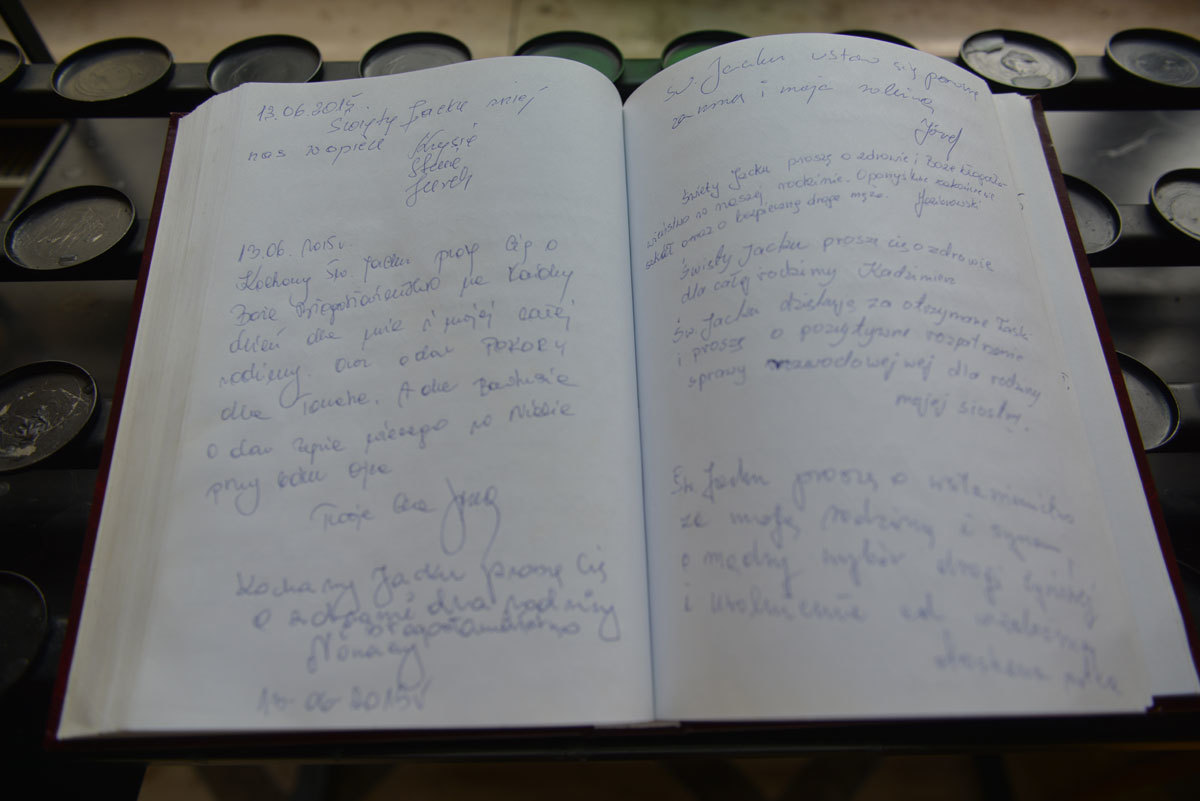 13.06.2015.
Święty Jacku miej
nas w opiece Krysię
13.06.2015r.
Kochany Św. Jacku proszę Cię o
Boże Błogosławieństwo na każdy
dzień dla mnie i mojej całej
rodziny. Oraz o dar POKORY
dla
o dar życia wiecznego w Niebie
przy boku Ojca
Twoja
Kochany Jacku proszę Cię
o zdrowie dla rodziny
i błogosławieństwo
13.06.2015r
Św. Jacku wstaw się
za mną i moją rodziną
Józef
Święty Jacku proszę o zdrowie i Boże błogosła-
wieństwo w naszej rodzinie. O pomyślne zakończenie
szkół oraz o bezpieczną drogę męża.
Święty Jacku proszę cię o zdrowie
dla całej rodziny Kazimierz
Św. Jacku dziękuję za otrzymane łaski
i proszę o pozytywne rozpatrzenie
sprawy zawodowej wej dla rodziny
mojej siostry.
Św. Jacku proszę o wstawiennictwo
za moją rodzinę i synem,
o mądry wybór drogi życiowej
i uwolnienie od